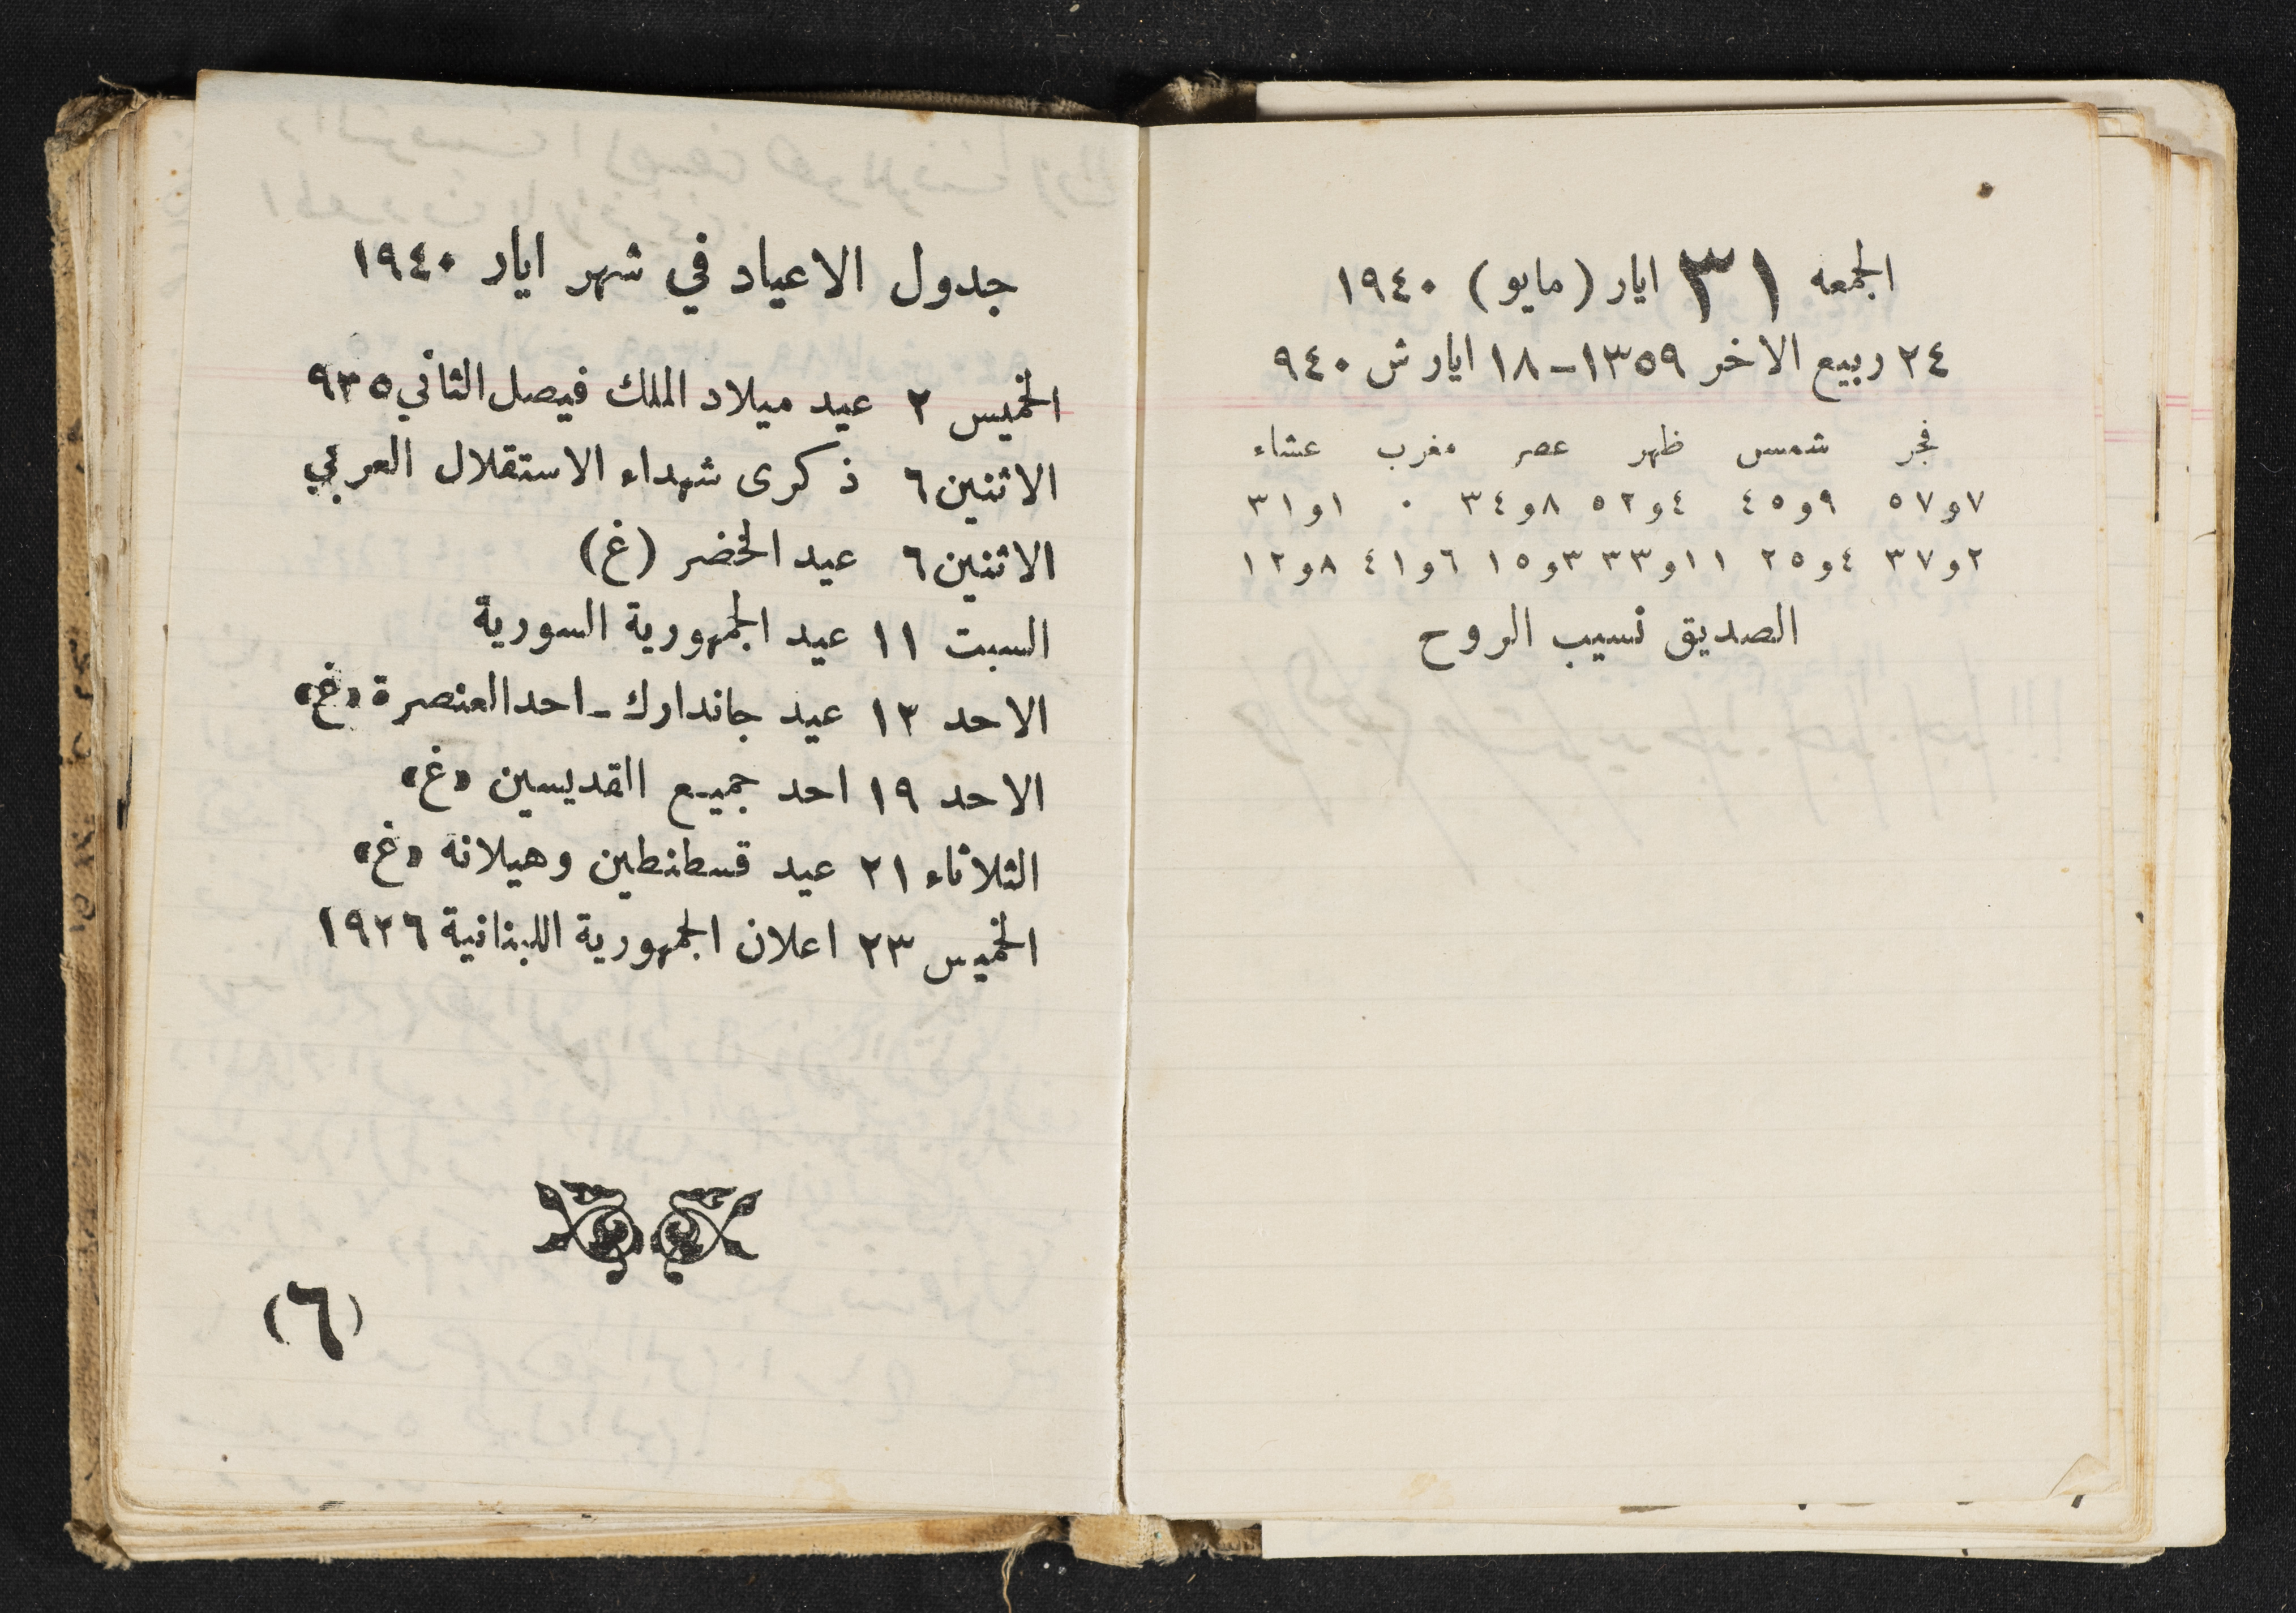 الجمعه ٣١ ايار (مايو) ١٩٤٠
٢٤ ربيع الاخر ١٣٥٩ـ١٨ ايار ش ٩٤٠
فجر شمس ظهر عصر مغرب عشاء
٧و٥٧ ٩و٤٥ ٤و٥٢ ٨و٣٤ ٠ ١و٣١
٢و٣٧ ٤و٢٥ ١١و٣٣ ٣و١٥ ٦و٤١ ٨و١٢
الصديق نسيب الروح
جدول الاعياد في شهر ايار ١٩٤٠
الخميس ٢ عيد ميلاد الملك فيصل الثاني ٩٣٥
الاثنين ٦ ذكرى شهداء الاستقلال العربي
الاثنين ٦ عيد الخضر (غ)
السبت ١١ عيد الجمهورية السورية
الاحد ١٢ عيد جاندارك ـ احد العنصرة «غ»
الاحد ١٩ احد جميع القديسين «غ»
الثلاثاء ٢١ عيد قسطنطين وهيلانه «غ»
الخميس ٢٣ اعلان الجمهورية اللبنانية ١٩٢٦
(٦)